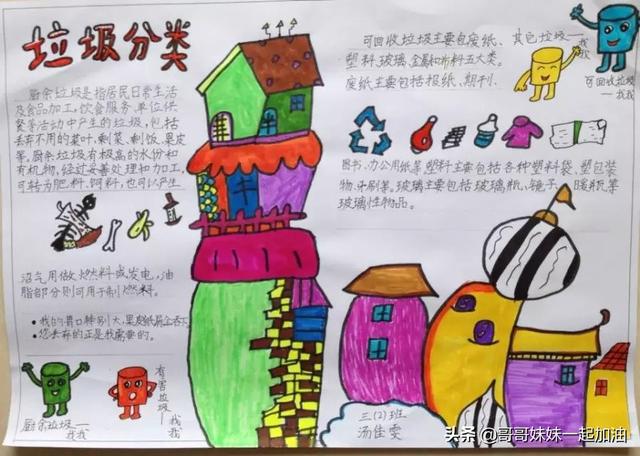 垃圾分类
厨余垃圾是指居民日常生活
及食品加工,饮食服务、单位供
餐等活动中产生的垃圾,包括
丢弃不用的菜叶、剩菜、剩饭、果皮
等,厨余垃圾有极高的水份和
有机物,经过妥善处理和加工,
可转为肥料、饲料,也可以产生
沼气用做燃料或发电,油
脂部分则可用于制燃料。
•我的胃口特别大,果皮纸屑全吞下
•您丢弃的正是我需要的。
厨余垃圾——
找我
有害垃圾——
找我
可回收垃圾主要包废纸、
塑料、玻璃、金属和布料五大类。
废纸主要包括报纸、期刊、
其它垃圾——
找我
可回收垃圾
——找我
图书、办公用纸等塑料主要包括各种塑料袋、塑包装
物、牙刷等,玻璃主要包括玻璃瓶、镜子、暖瓶等
玻璃性物品。
三(2)班
汤佳雯
头条@哥哥妹妹一起加油